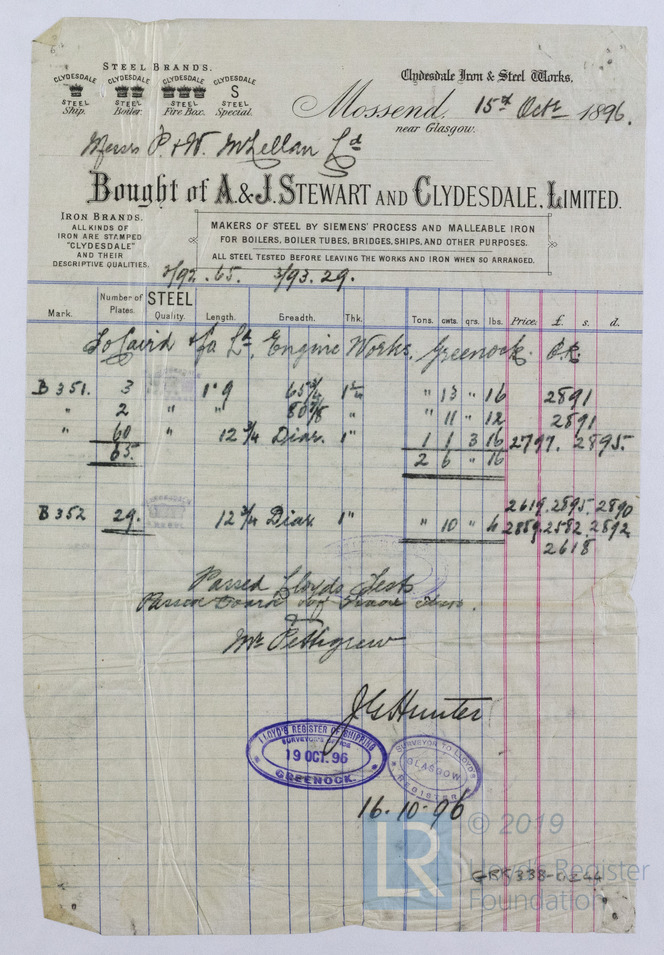 STEEL BRANDS.
CLYDESDALE CLYDESDALE CLYDESDALE CLYDESDALE
S
STEEL STEEL STEEL STEEL
Ship. Boiler. Fire Box. Special.
Clydesdale Iron & Steel Works,
Mossend, 15th Octr 1896.
near Glasgow.
Messrs P. & W. McLellan Ld
Bought of A. & J. STEWART AND CLYDESDALE, LIMITED.
IRON BRANDS.
ALL KINDS OF
IRON ARE STAMPED
"CLYDESDALE"
AND THEIR
DESCRIPTIVE QUALITIES.
MAKERS OF STEEL BY SIEMENS' PROCESS AND MALLEABLE IRON
FOR BOILERS, BOILER TUBES, BRIDGES, SHIPS, AND OTHER PURPOSES.
ALL STEEL TESTED BEFORE LEAVING THE WORKS AND IRON WHEN SO ARRANGED.
/92. 65. 3/93. 29.
Mark. Number of Plates. STEEL Quality. Length. Breadth. Thk. Tons. cwts. qrs. lbs. Price. £. s. d.
To Laird & Co Ld, Engine Works, Greenock.
B 351. 3 1" 9 65 3/4 " 13 " 16 2891
" 2 " " " " 11 " 12 2891
" 60 " 12 3/4 Diar. 1" 1 1 3 16 2797. 2895.
65. 2 6 " 16
2619. 2895. 2890
B 352 29. 12 3/4 Diar. 1" " 10 " 4 2889. 2582. 2892
2618
Passed Lloyds Tests
Passed Board of Trade Tests.
Mr Pettigrew
J G Hunter
LLOYD'S REGISTER OF SHIPPING
SURVEYOR'S OFFICE
19 OCT. 96
GREENOCK.
SURVEYOR TO LLOYD'S
GLASGOW
REGISTER
16-10-96
LR
© 2019
Lloyd's Register
Foundation